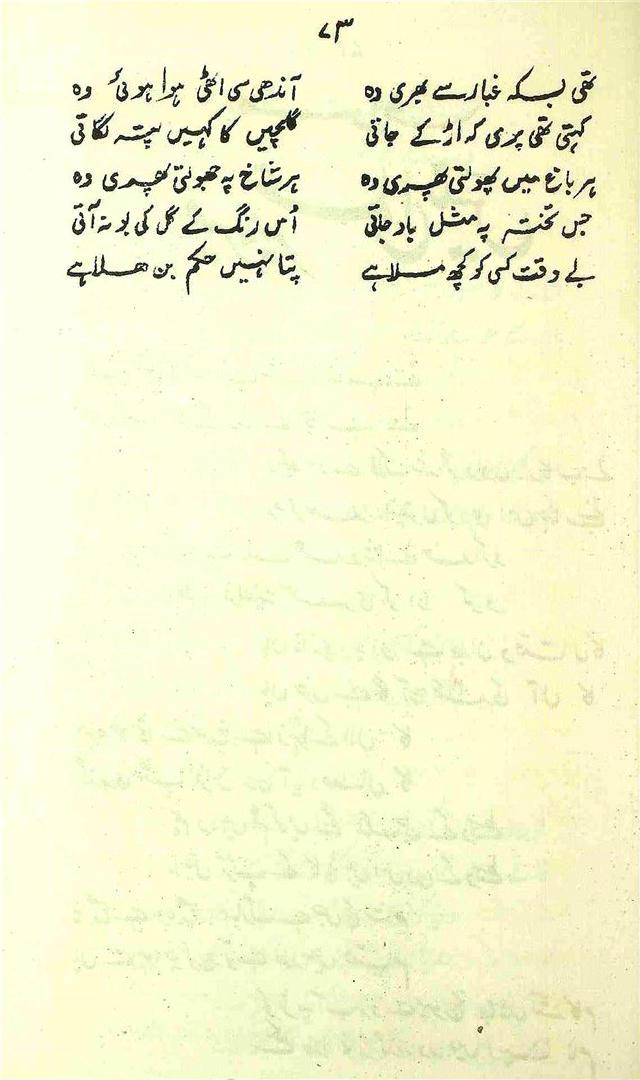 ۷۳
تھی بسکہ غبار سے بھری وہ آندھی سی اٹھی ہوا ہوئی وہ
کہتی تھی پری کہ اڑ کے جاتی گلچیں کا کہیں پتہ لگاتی
ہر باغ میں پھولتی پھری وہ ہر شاخ پہ جھولتی پھری وہ
جس تختہ پہ مثل باد جاتی اُس رنگ کے گل کی بو نہ آتی
بے وقت کسی کو کچھ ملا ہے پتا نہیں حکم بن ھلا ہے